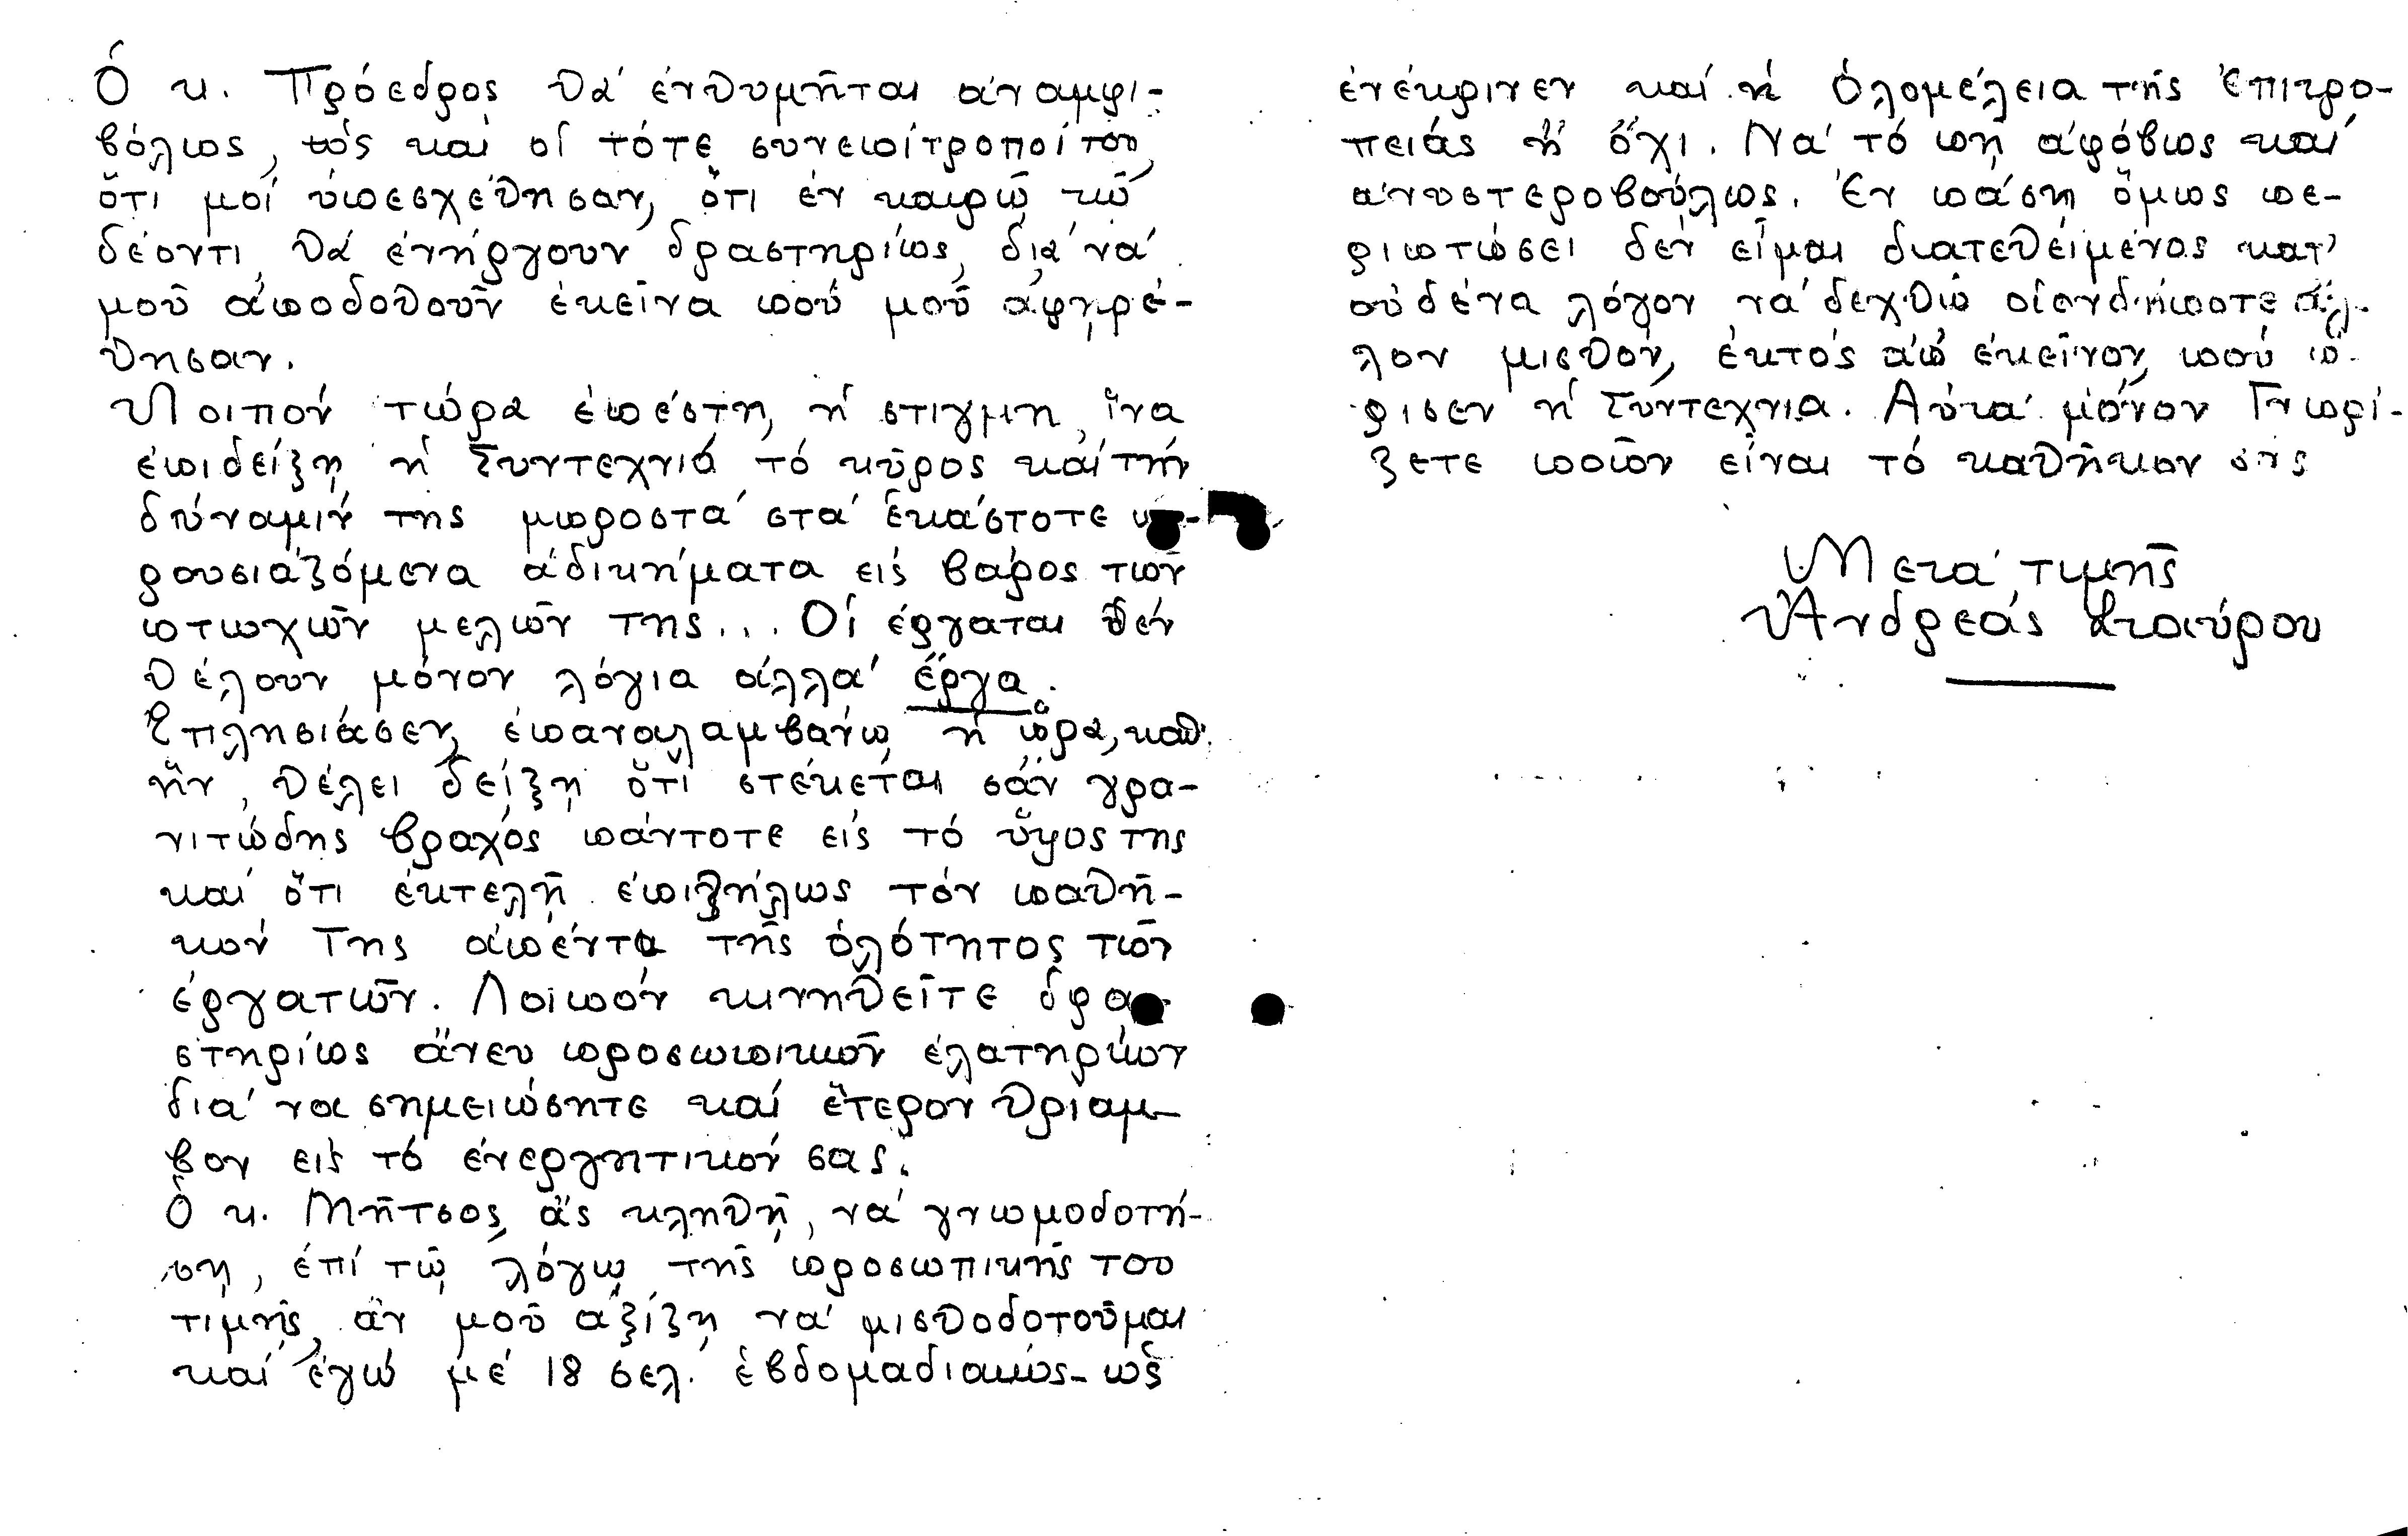 Ὁ κ. Πρόεδρος θά ἐνθυμῆται ἀναμφι-
βόλως, ὡς καί οἱ τότε συνεπίτροποί του,
ὅτι μοί ὑπεσχέθησαν, ὅτι ἐν καιρῷ τῷ
δέοντι, θά ἐνήργουν δραστηρίως, διά νά
μοῦ ἀποδοθοῦν ἐκεῖνα πού μοῦ ἀφῃρέ-
θησαν.
Λοιπόν τώρα ἐπέστη, ἡ στιγμη, ἵνα
ἐπιδείξῃ ἡ Συντεχνιά τό κῦρος καί τήν
δύναμιν της μπροστά στά ἑκάστοτε
ρουσιαζόμενα ἀδικήματα εἰς βάρος τῶν
πτωχῶν μελῶν της... Οἱ ἐργάται δέν
θέλουν μόνον λόγια ἀλλά ἔργα.
Ἐπλησίασεν, ἐπαναλαμβάνω ἡ ὥρα, καθ'
ἥν, θέλει δείξῃ ὅτι στέκεται σάν γρα-
νιτώδης βράχος πάντοτε εἰς τό ὕψος της
καί ὅτι ἐκτελῇ ἐπιζήλως τόν παθῆ-
κον Της ἀπέντα τῆς ὁλότητος τῶν
ἐργατῶν. Λοιπόν κινηθεῖτε δρα-
στηρίως ἄνευ προσωπικῶν ἐλατηρίων
διά να σημειώσητε καί ἕτερον θρίαμ-
βον εἰς τό ἐνεργητικόν σας.
Ὁ κ. Μῆτσος ἄς κληθῇ, νά γνωμοδοτή-
σῃ, ἐπί τῷ λόγῳ τῆς προσωπικῆς του
τιμῆς, ἄν μοῦ ἀξίζῃ νά μισθοδοτοῦμαι
καί ἐγώ μέ 18 σελ. ἑβδομαδιακῶς - ὡς
ἐνέκρινεν καί ἡ Ὁλομέλεια τῆς Ἐπιτρο-
πειάς ἤ ὄχι. Νά τό πῇ ἀφόβως καί
ἀνυστεροβούλως. Ἐν πάσῃ ὅμως πε-
ριπτώσει δέν εἶμαι διατεθειμένος κατ'
οὐδένα λόγον νά δεχθῶ οἱονδήποτε ἄλ-
λον μισθόν, ἐκτός ἀπ' ἐκεῖνον, πού ὥ-
ρισεν ἡ Συντεχνια. Αὐτά μόνον Γνωρί-
ζετε ποῖον εἶναι τό καθῆκον σας
Μετά τιμῆς
Ἀνδρέας Σταύρου